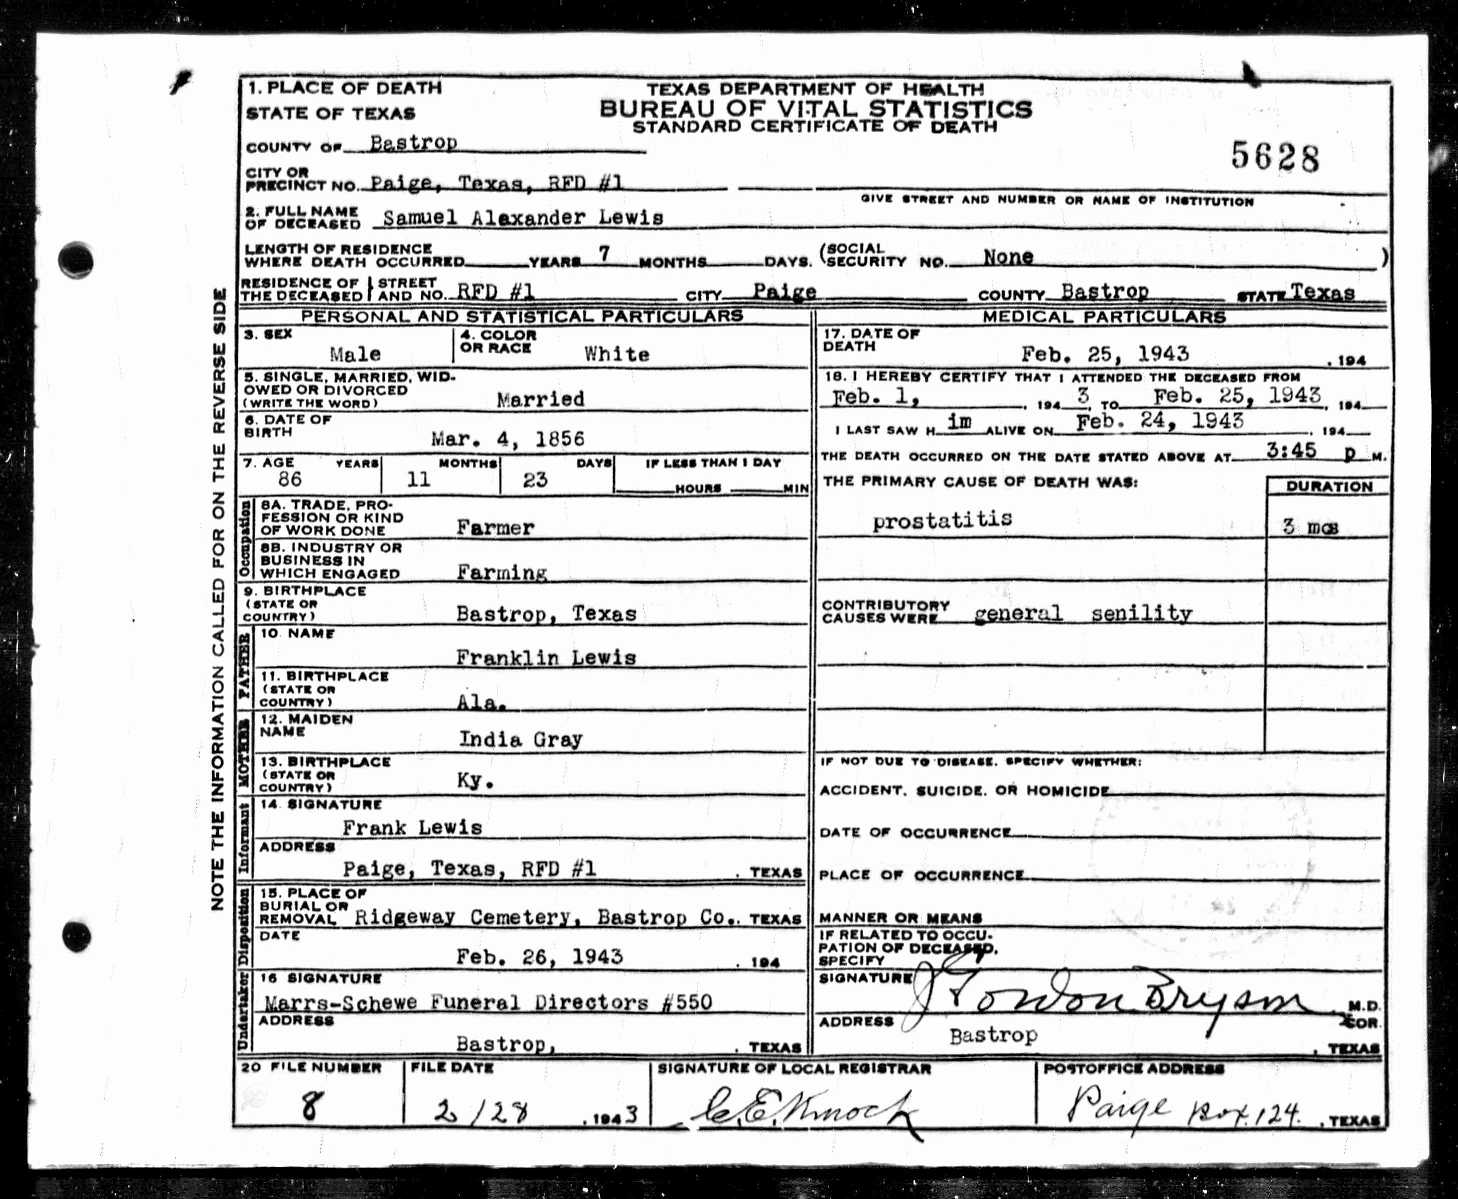 1. PLACE OF DEATH
STATE OF TEXAS
TEXAS DEPARTMENT OF HEALTH
BUREAU OF VITAL STATISTICS
STANDARD CERTIFICATE OF DEATH
5628
COUNTY OF Bastrop
CITY OR
PRECINCT NO. Paige, Texas, RFD #1
GIVE STREET AND NUMBER OR NAME OF INSTITUTION
2. FULL NAME
OF DECEASED Samuel Alexander Lewis
LENGTH OF RESIDENCE
WHERE DEATH OCCURRED YEARS 7 MONTHS DAYS. (SOCIAL
SECURITY NO. None )
RESIDENCE OF
THE DECEASED STREET
AND NO. RFD #1 CITY Paige COUNTY Bastrop STATE Texas
PERSONAL AND STATISTICAL PARTICULARS
3. SEX Male
4. COLOR
OR RACE White
5. SINGLE, MARRIED, WID-
OWED OR DIVORCED
(WRITE THE WORD) Married
6. DATE OF
BIRTH Mar. 4, 1856
7. AGE YEARS MONTHS DAYS IF LESS THAN 1 DAY
86 11 23 HOURS MIN
Occupation
8A. TRADE, PRO-
FESSION OR KIND
OF WORK DONE Farmer
8B. INDUSTRY OR
BUSINESS IN
WHICH ENGAGED Farming
9. BIRTHPLACE
(STATE OR
COUNTRY) Bastrop, Texas
FATHER
10. NAME
Franklin Lewis
11. BIRTHPLACE
(STATE OR
COUNTRY) Ala.
MOTHER
12. MAIDEN
NAME India Gray
13. BIRTHPLACE
(STATE OR
COUNTRY) Ky.
Informant
14. SIGNATURE
Frank Lewis
ADDRESS
Paige, Texas, RFD #1 . TEXAS
Disposition
15. PLACE OF
BURIAL OR
REMOVAL Ridgeway Cemetery, Bastrop Co.. TEXAS
DATE
Feb. 26, 1943 . 194
Undertaker
16 SIGNATURE
Marrs-Schewe Funeral Directors #550
ADDRESS
Bastrop, . TEXAS
MEDICAL PARTICULARS
17. DATE OF
DEATH Feb. 25, 1943 , 194
18. I HEREBY CERTIFY THAT I ATTENDED THE DECEASED FROM
Feb. 1, , 194 3, TO Feb. 25, 1943, 194
I LAST SAW H im ALIVE ON Feb. 24, 1943 , 194
THE DEATH OCCURRED ON THE DATE STATED ABOVE AT 3:45 p M.
THE PRIMARY CAUSE OF DEATH WAS: DURATION
prostatitis 3 mos
CONTRIBUTORY
CAUSES WERE general senility
IF NOT DUE TO DISEASE, SPECIFY WHETHER:
ACCIDENT, SUICIDE, OR HOMICIDE
DATE OF OCCURRENCE
PLACE OF OCCURRENCE
MANNER OR MEANS
IF RELATED TO OCCU-
PATION OF DECEASED,
SPECIFY
SIGNATURE J Gordon Bryson M.D.
COR.
ADDRESS Bastrop , TEXAS
20 FILE NUMBER FILE DATE SIGNATURE OF LOCAL REGISTRAR POSTOFFICE ADDRESS
8 2/28 , 1943 C.E. Knock Paige Box.124. , TEXAS
NOTE THE INFORMATION CALLED FOR ON THE REVERSE SIDE